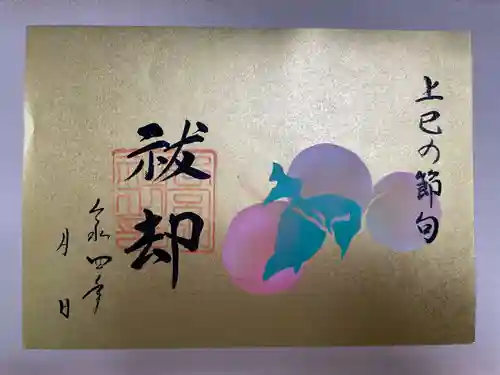 上巳の節句
祓却
令四年
月 日